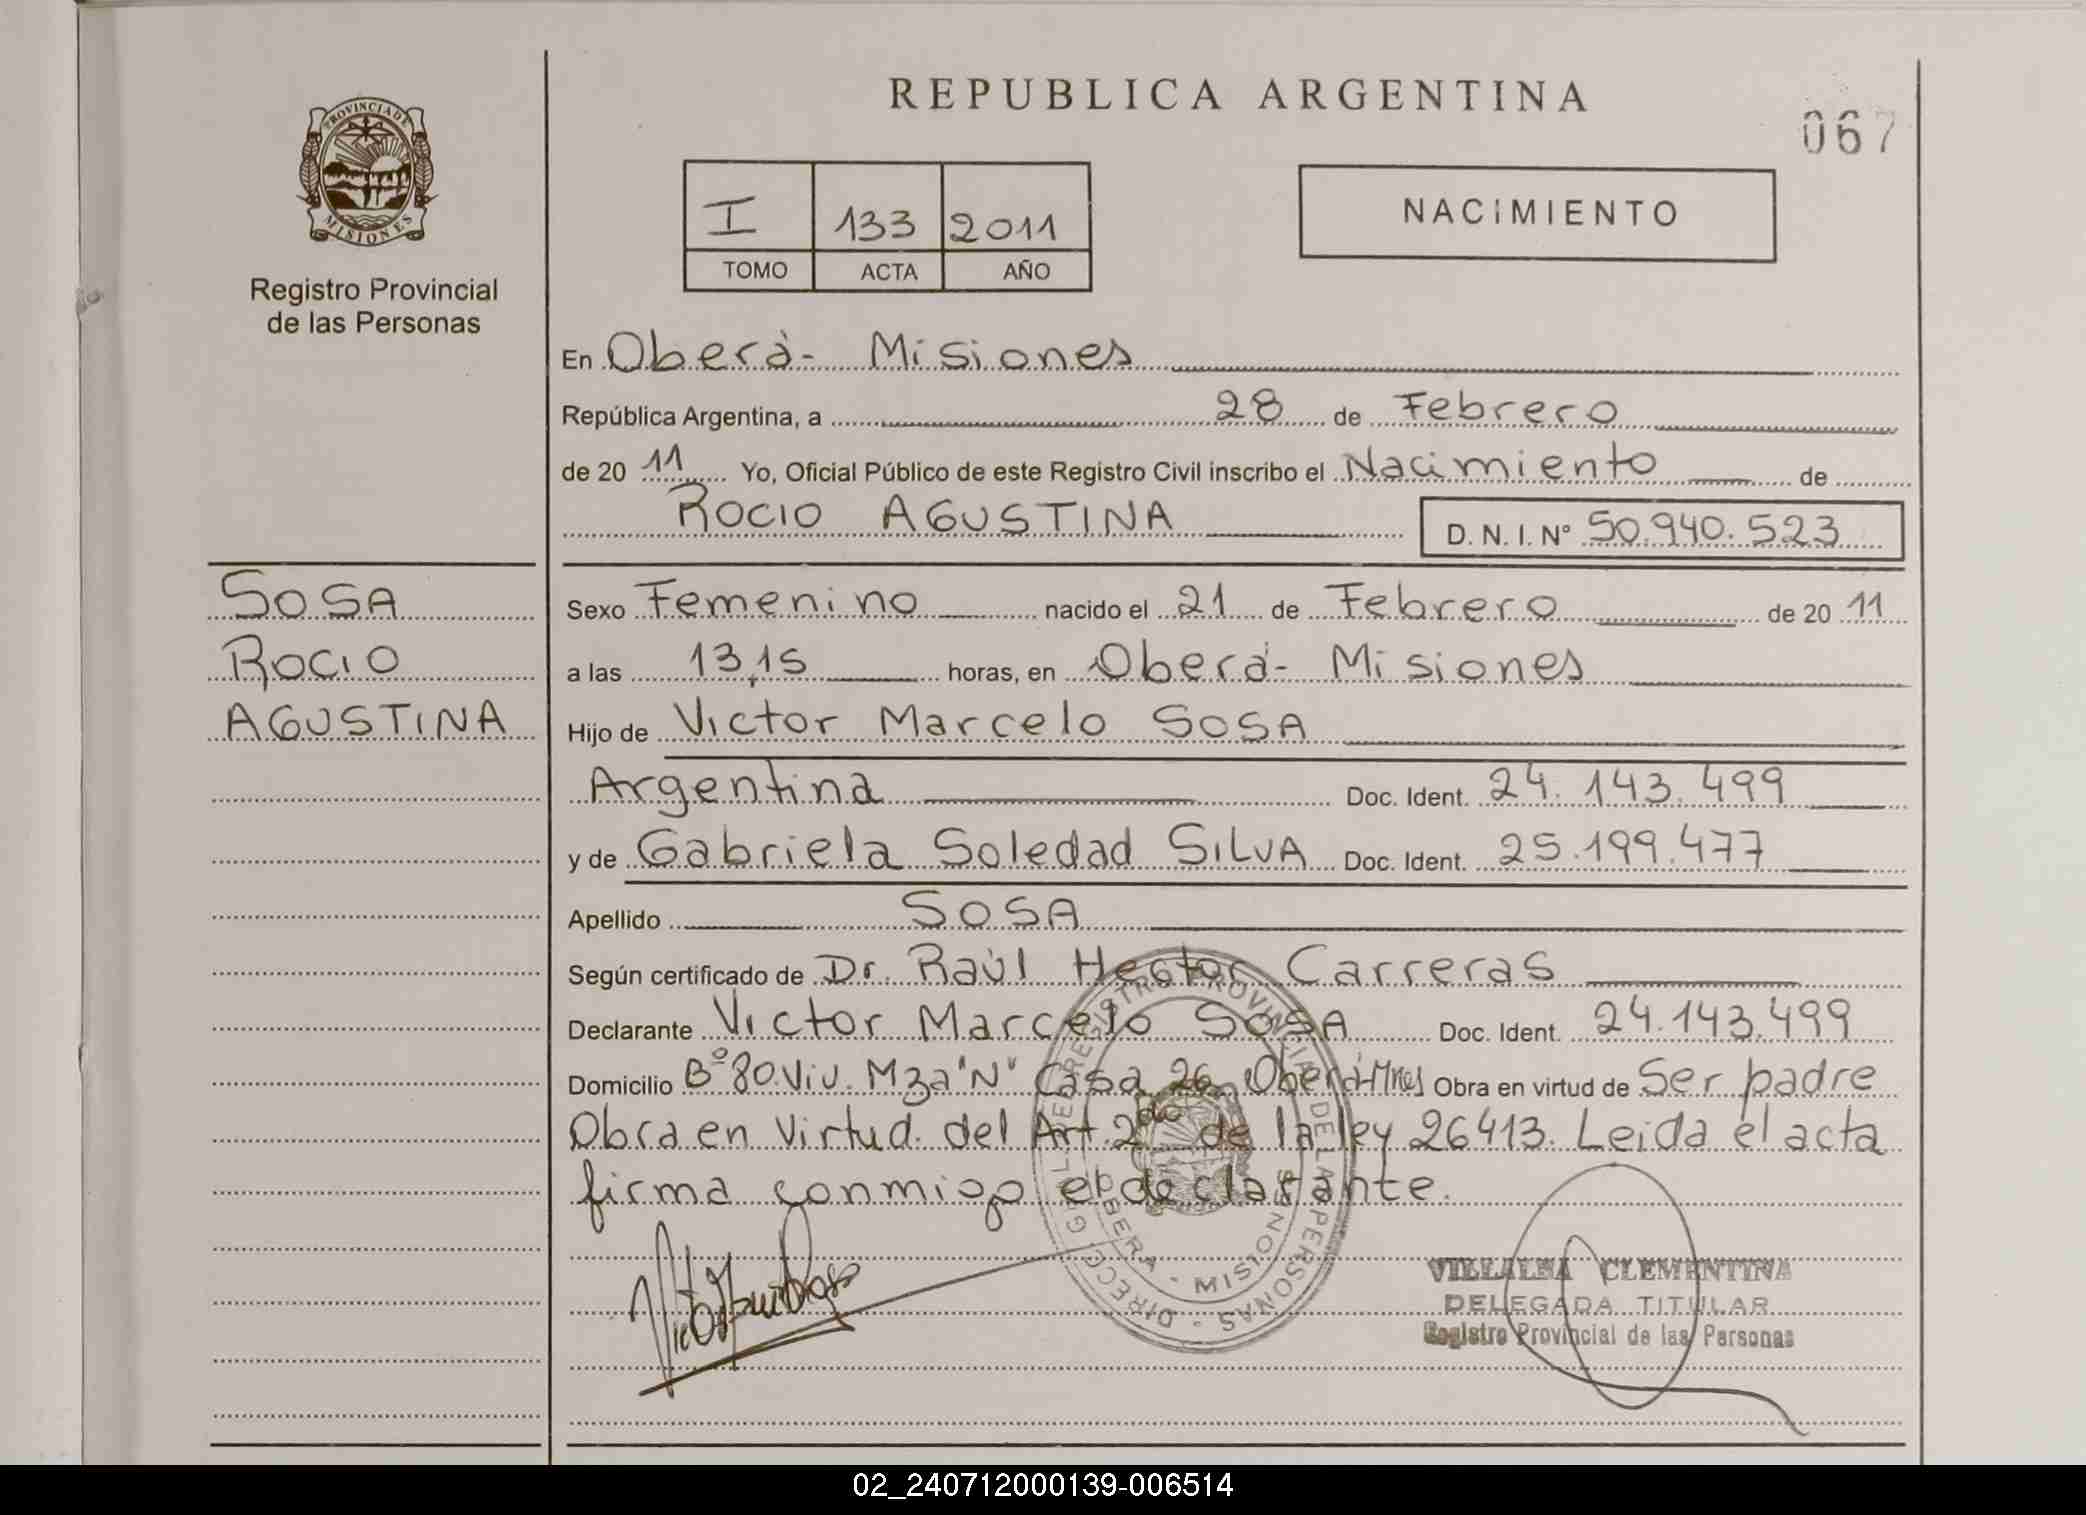 REPUBLICA ARGENTINA
067
PROVINCIA DE
MISIONES
Registro Provincial
de las Personas
I 133 2011
TOMO ACTA AÑO
NACIMIENTO
En Oberá- Misiones
República Argentina, a 28 de Febrero
de 20 11 Yo, Oficial Público de este Registro Civil inscribo el Nacimiento de
ROCIO AGUSTINA D. N. I. Nº 50.940.523
SOSA
ROCIO
AGUSTINA
Sexo Femenino nacido el 21 de Febrero de 20 11
a las 13,15 horas, en Oberá- Misiones
Hijo de Victor Marcelo SOSA
Argentina Doc. Ident. 24.143.499
y de Gabriela Soledad SILVA Doc. Ident. 25.199.477
Apellido SOSA
Según certificado de Dr. Raúl Hector Carreras
Declarante Victor Marcelo SOSA Doc. Ident. 24.143.499
Domicilio Bº 80.Viv. Mza "N" Casa 26 Oberá-Mnes Obra en virtud de Ser padre
Obra en Virtud del Art. 2do de la ley 26413. Leida el acta
firma conmigo el declarante.
DIRECC. GRAL. DEL REGISTRO PROVINCIAL DE LAS PERSONAS -
OBERA - MISIONES
VILLALBA CLEMENTINA
DELEGADA TITULAR
Registro Provincial de las Personas
02_240712000139-006514